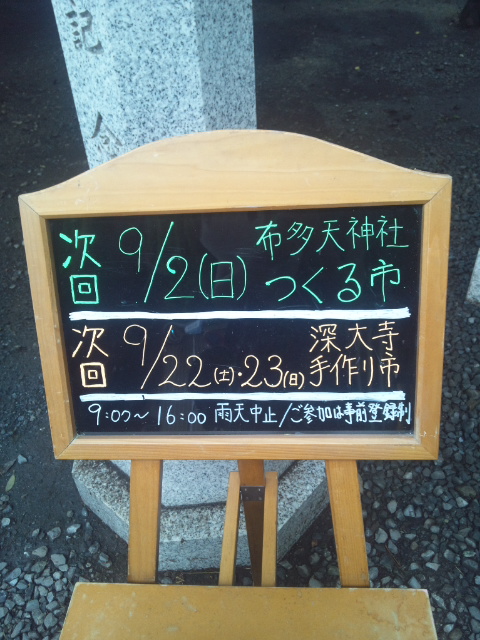 記念
次回 9/2(日) 布多天神社
つくる市
次回 9/22(土)・23(日) 深大寺
手作り市
9:00〜16:00 雨天中止/ご参加は事前登録制